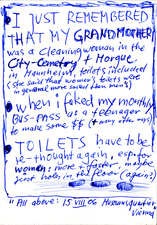 I JUST REMEMBERED
THAT MY GRANDMOTHER
was a cleaning woman in the
City-Cemetery + Morgue
in Mannheim, toilets included
(she said that women's toilets were
in general more soiled than men's)
when I faked my monthly
Bus-pass as a teenager
to make some $$
TOILETS have to be
re-thought again, esp. for
women: more + faster, maybe
just holes in the floor (again?)
"All above: 15 VIII 06
Vienna